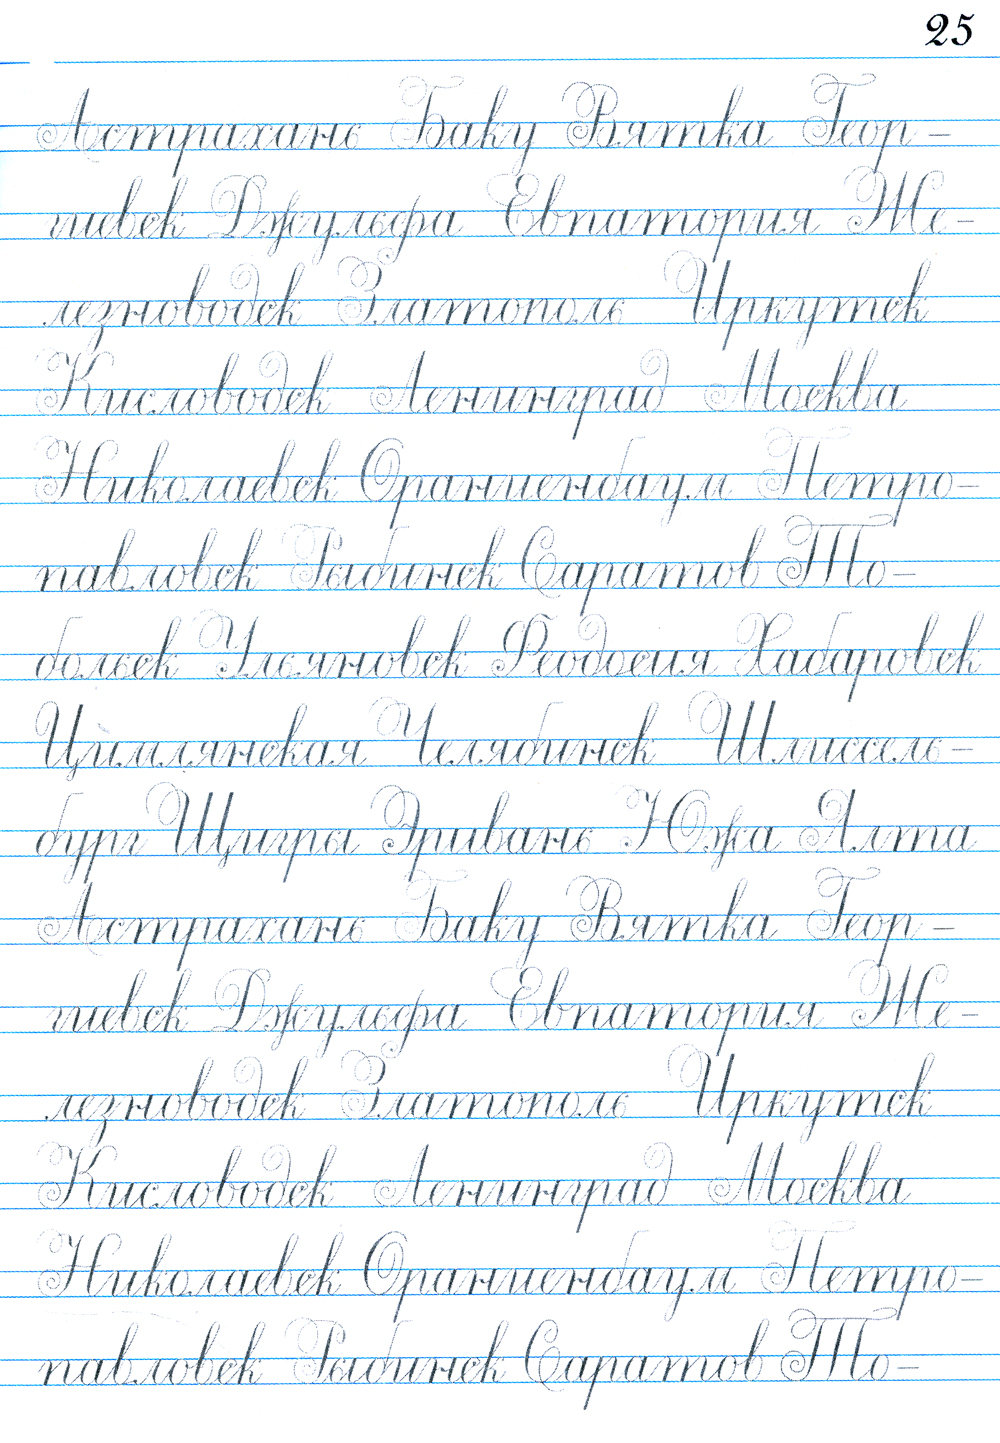 25
Астрахань Баку Вятка Геор-
гиевск Джульфа Евпатория Же-
лезноводск Златополь Иркутск
Кисловодск Ленинград Москва
Николаевск Ораниенбаум Петро-
павловск Рыбинск Саратов То-
больск Ульяновск Феодосия Хабаровск
Цимлянская Челябинск Шлиссель-
бург Щигры Эривань Южа Ялта
Астрахань Баку Вятка Геор-
гиевск Джульфа Евпатория Же-
лезноводск Златополь Иркутск
Кисловодск Ленинград Москва
Николаевск Ораниенбаум Петро-
павловск Рыбинск Саратов То-